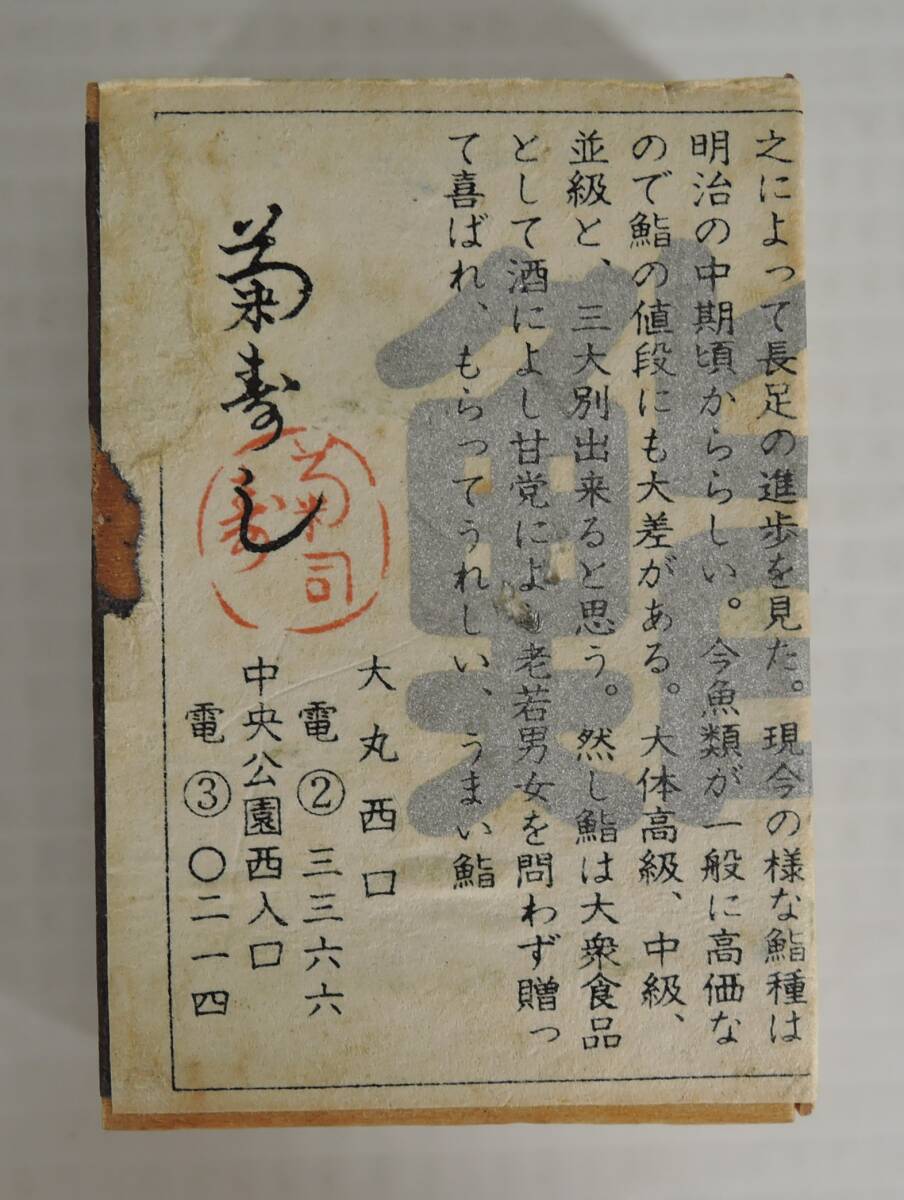 之によって長足の進歩を見た。現今の様な鮨種は
明治の中期頃かららしい。今魚類が一般に高価な
ので鮨の値段にも大差がある。大体高級、中級、
並級と、三大別出来ると思う。然し鮨は大衆食品
として酒によし甘党によし老若男女を問わず贈っ
て喜ばれ、もらってうれしい、うまい鮨
大丸西口
電②三三六六
中央公園西入口
電③〇二一四
菊寿し
菊寿司